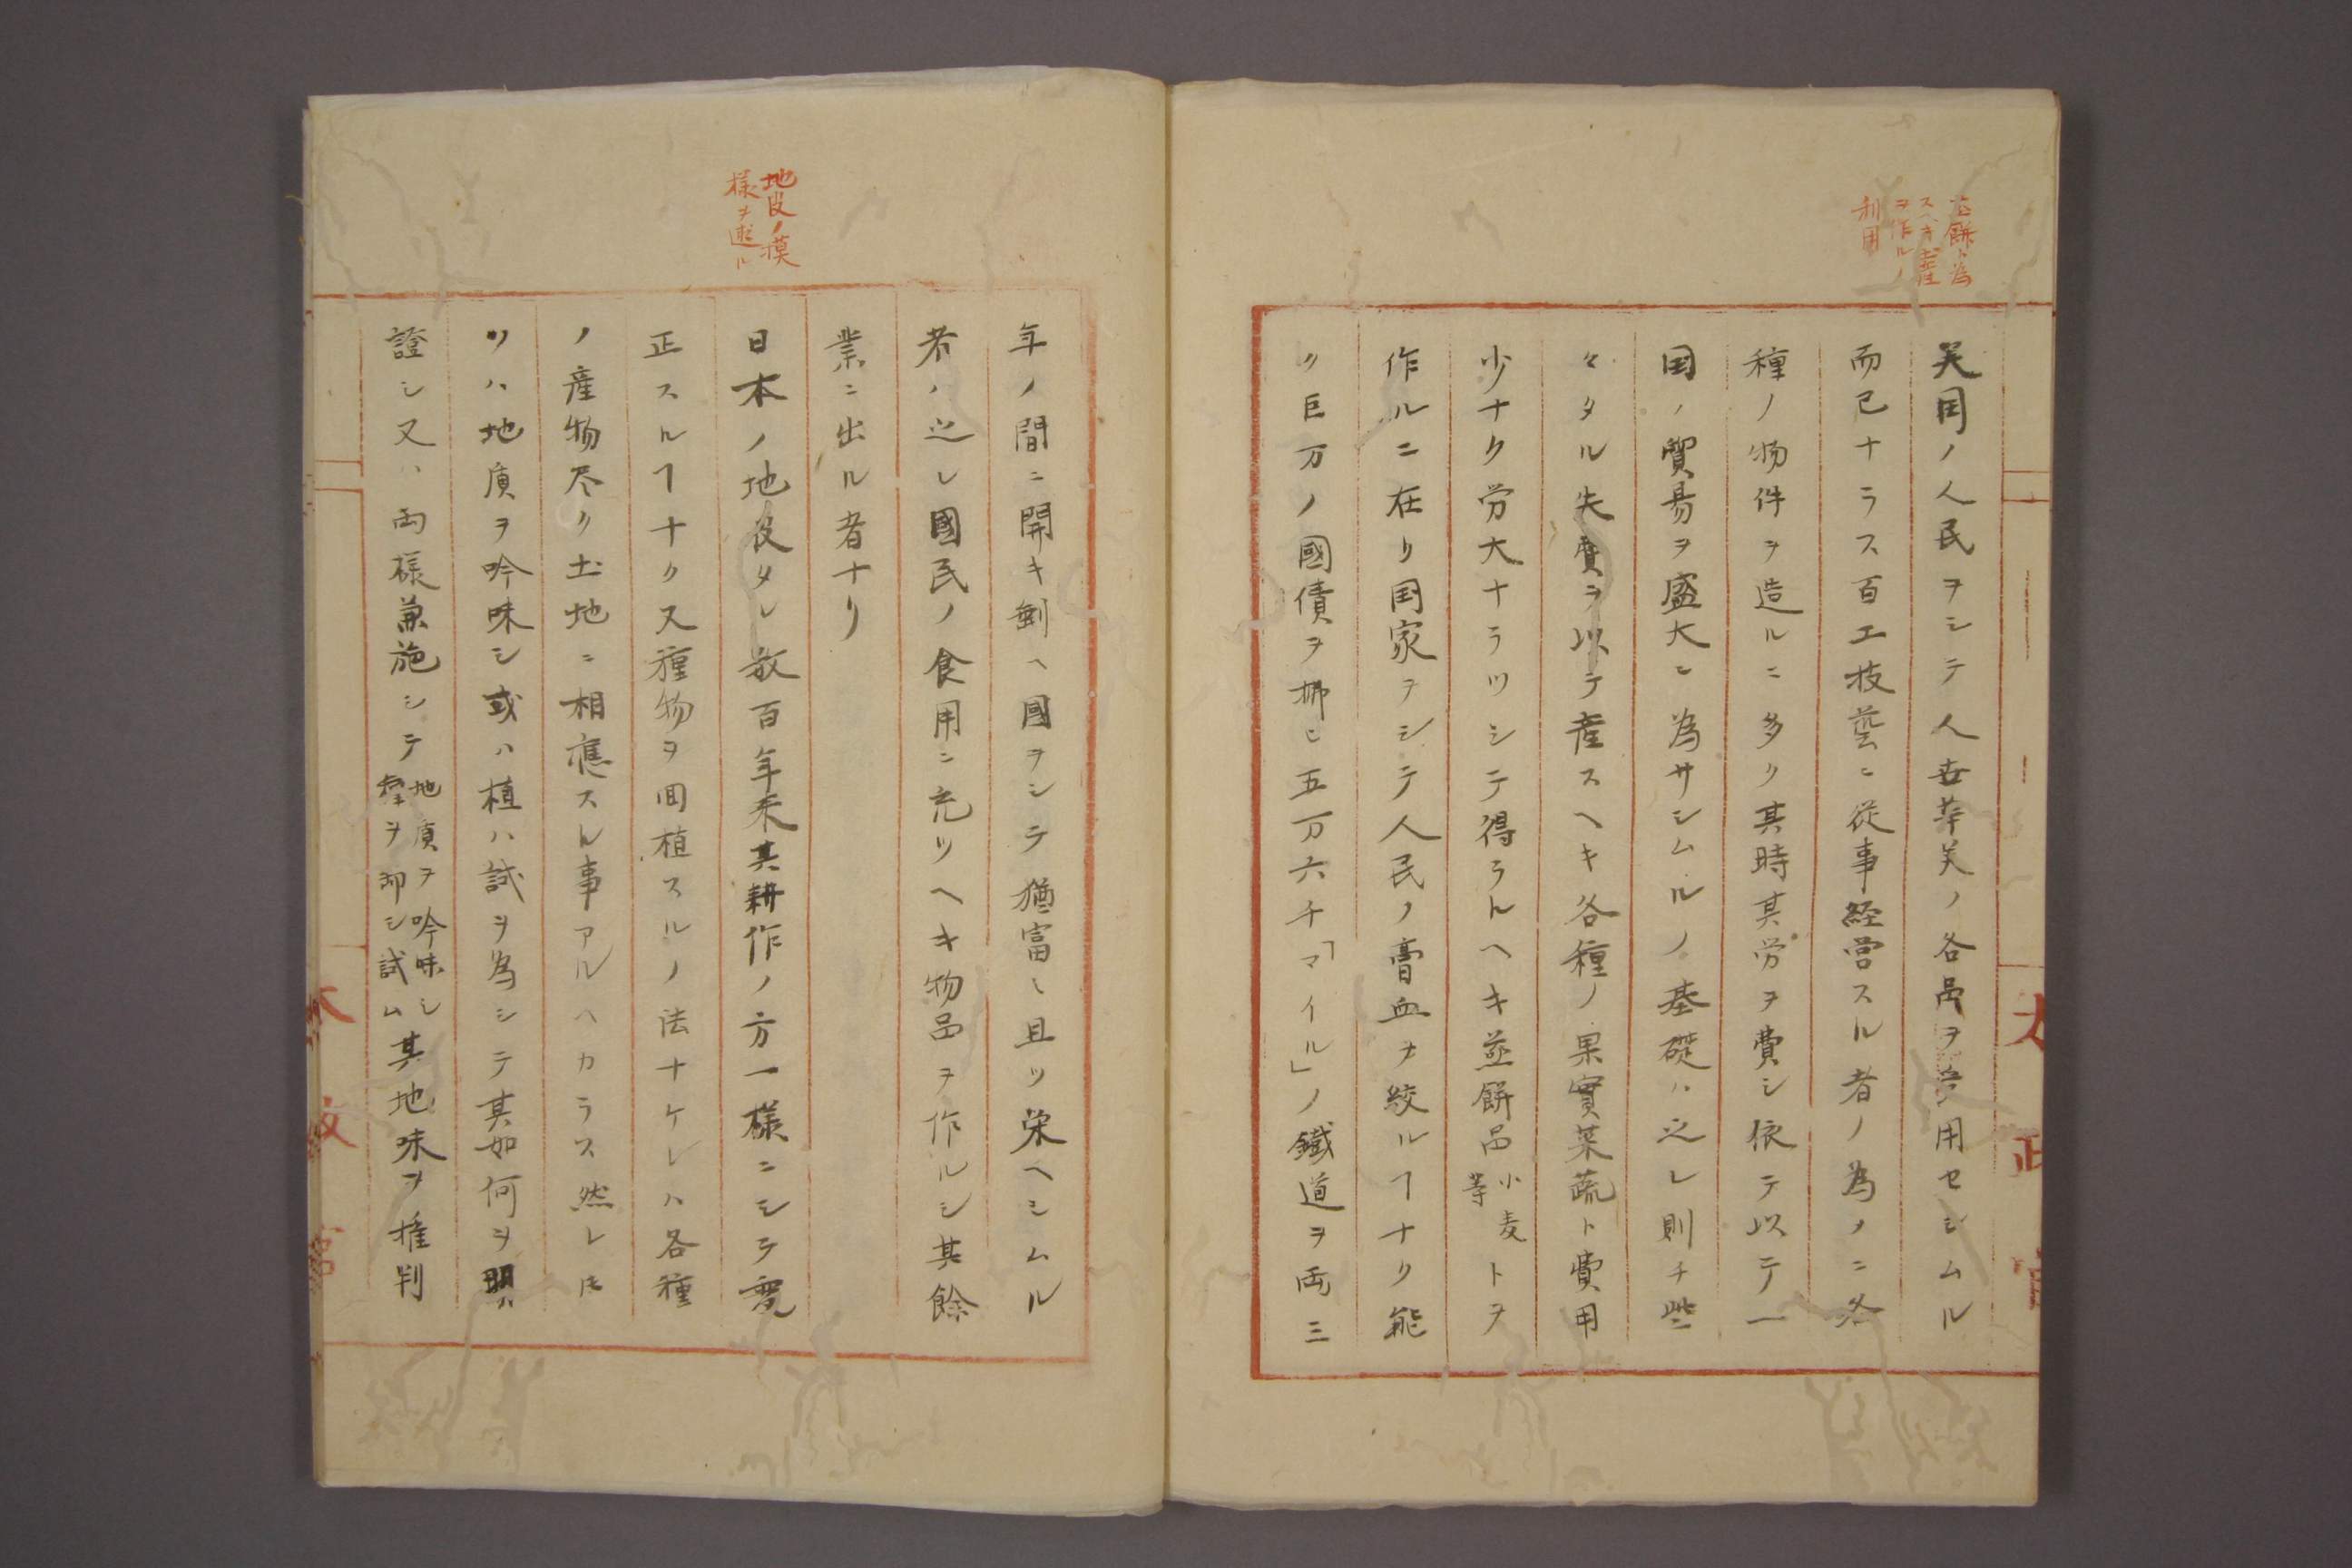 蒸餅ト為
スヘキ産
ヲ作ルノ
利用
英国ノ人民ヲシテ人世華美ノ各品ヲ用セシムル
而已ナラス百工技藝ニ従事経営スル者ノ為メニ各
種ノ物件ヲ造ルニ多ク其時其労ヲ費シ依テ以テ一
国ノ貿易ヲ盛大ニ為サシムルノ基礎ハ之レ則チ些
々タル失費ヲ以テ産スヘキ各種ノ果實菜蔬ト費用
少ナク労大ナラツシテ得ラルヘキ蒸餅品小麦等トヲ
作ルニ在リ国家ヲシテ人民ノ膏血ヲ絞ルヿナク能
ク巨万ノ國債ヲ拂ヒ五万六千「マイル」ノ鐵道ヲ両三
太政官
地皮ノ摸
様ヲ述ル
年ノ間ニ開キ剰ヘ國ヲシテ猶富ミ且ツ栄ヘシムル
者ハ之レ國民ノ食用ニ充ツヘキ物品ヲ作ルシ其餘
業ニ出ル者ナリ
日本ノ地皮タレ数百年来其耕作ノ方一様ニシテ変
正スルヿナク又種物ヲ囬植スルノ法ナケレハ各種
ノ産物尽ク土地ニ相應スル事アルヘカラス然レ𪜈
ツハ地質ヲ吟味シ或ハ植ハ試ヲ為シテ其如何ヲ明ハ
證シ又ハ両様兼施シテ地質ヲ吟味シヲ卸シ試ム其地味ヲ推判
太政官